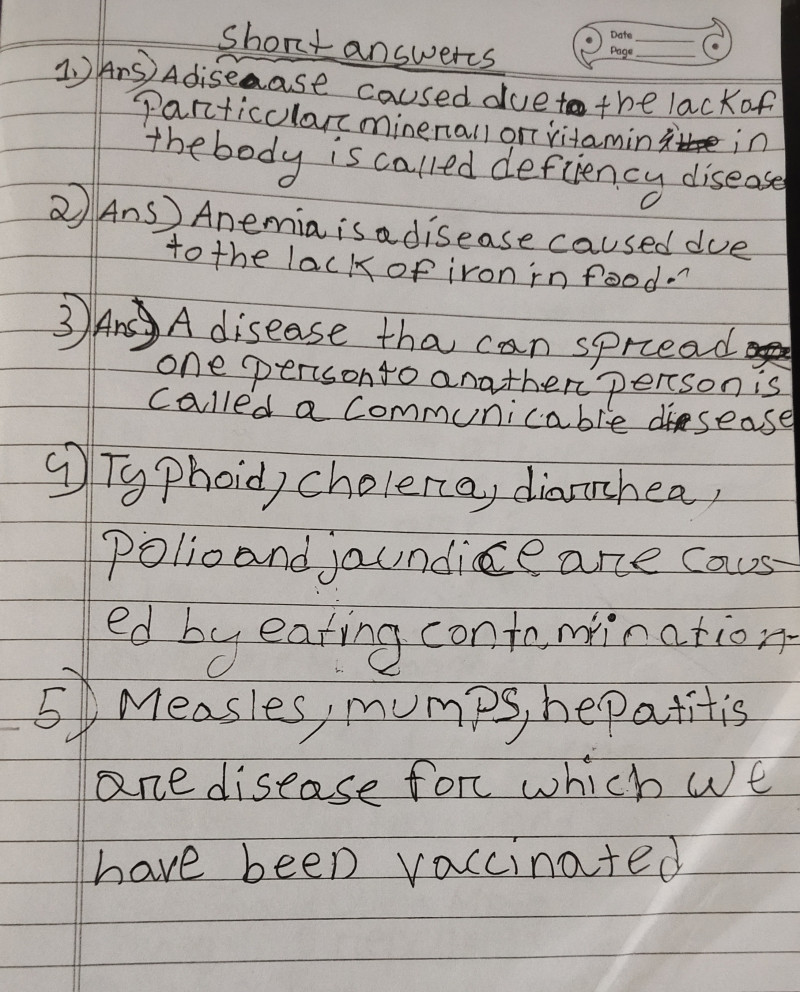 Short answers
Date
Page
1.) Ans) A diseaase caused due to the lack of
Particular minerall or vitamin in
the body is called deficiency disease
2) Ans) Anemia is a disease caused due
to the lack of iron in food.
3) Ans) A disease tha can spread
one person to anather person is
called a communicable disease
4) Typhoid, cholera, diarrhea,
Polio and jaundice are caus-
ed by eating contamination
5) Measles, mumps, hepatitis
are disease for which we
have been vaccinated